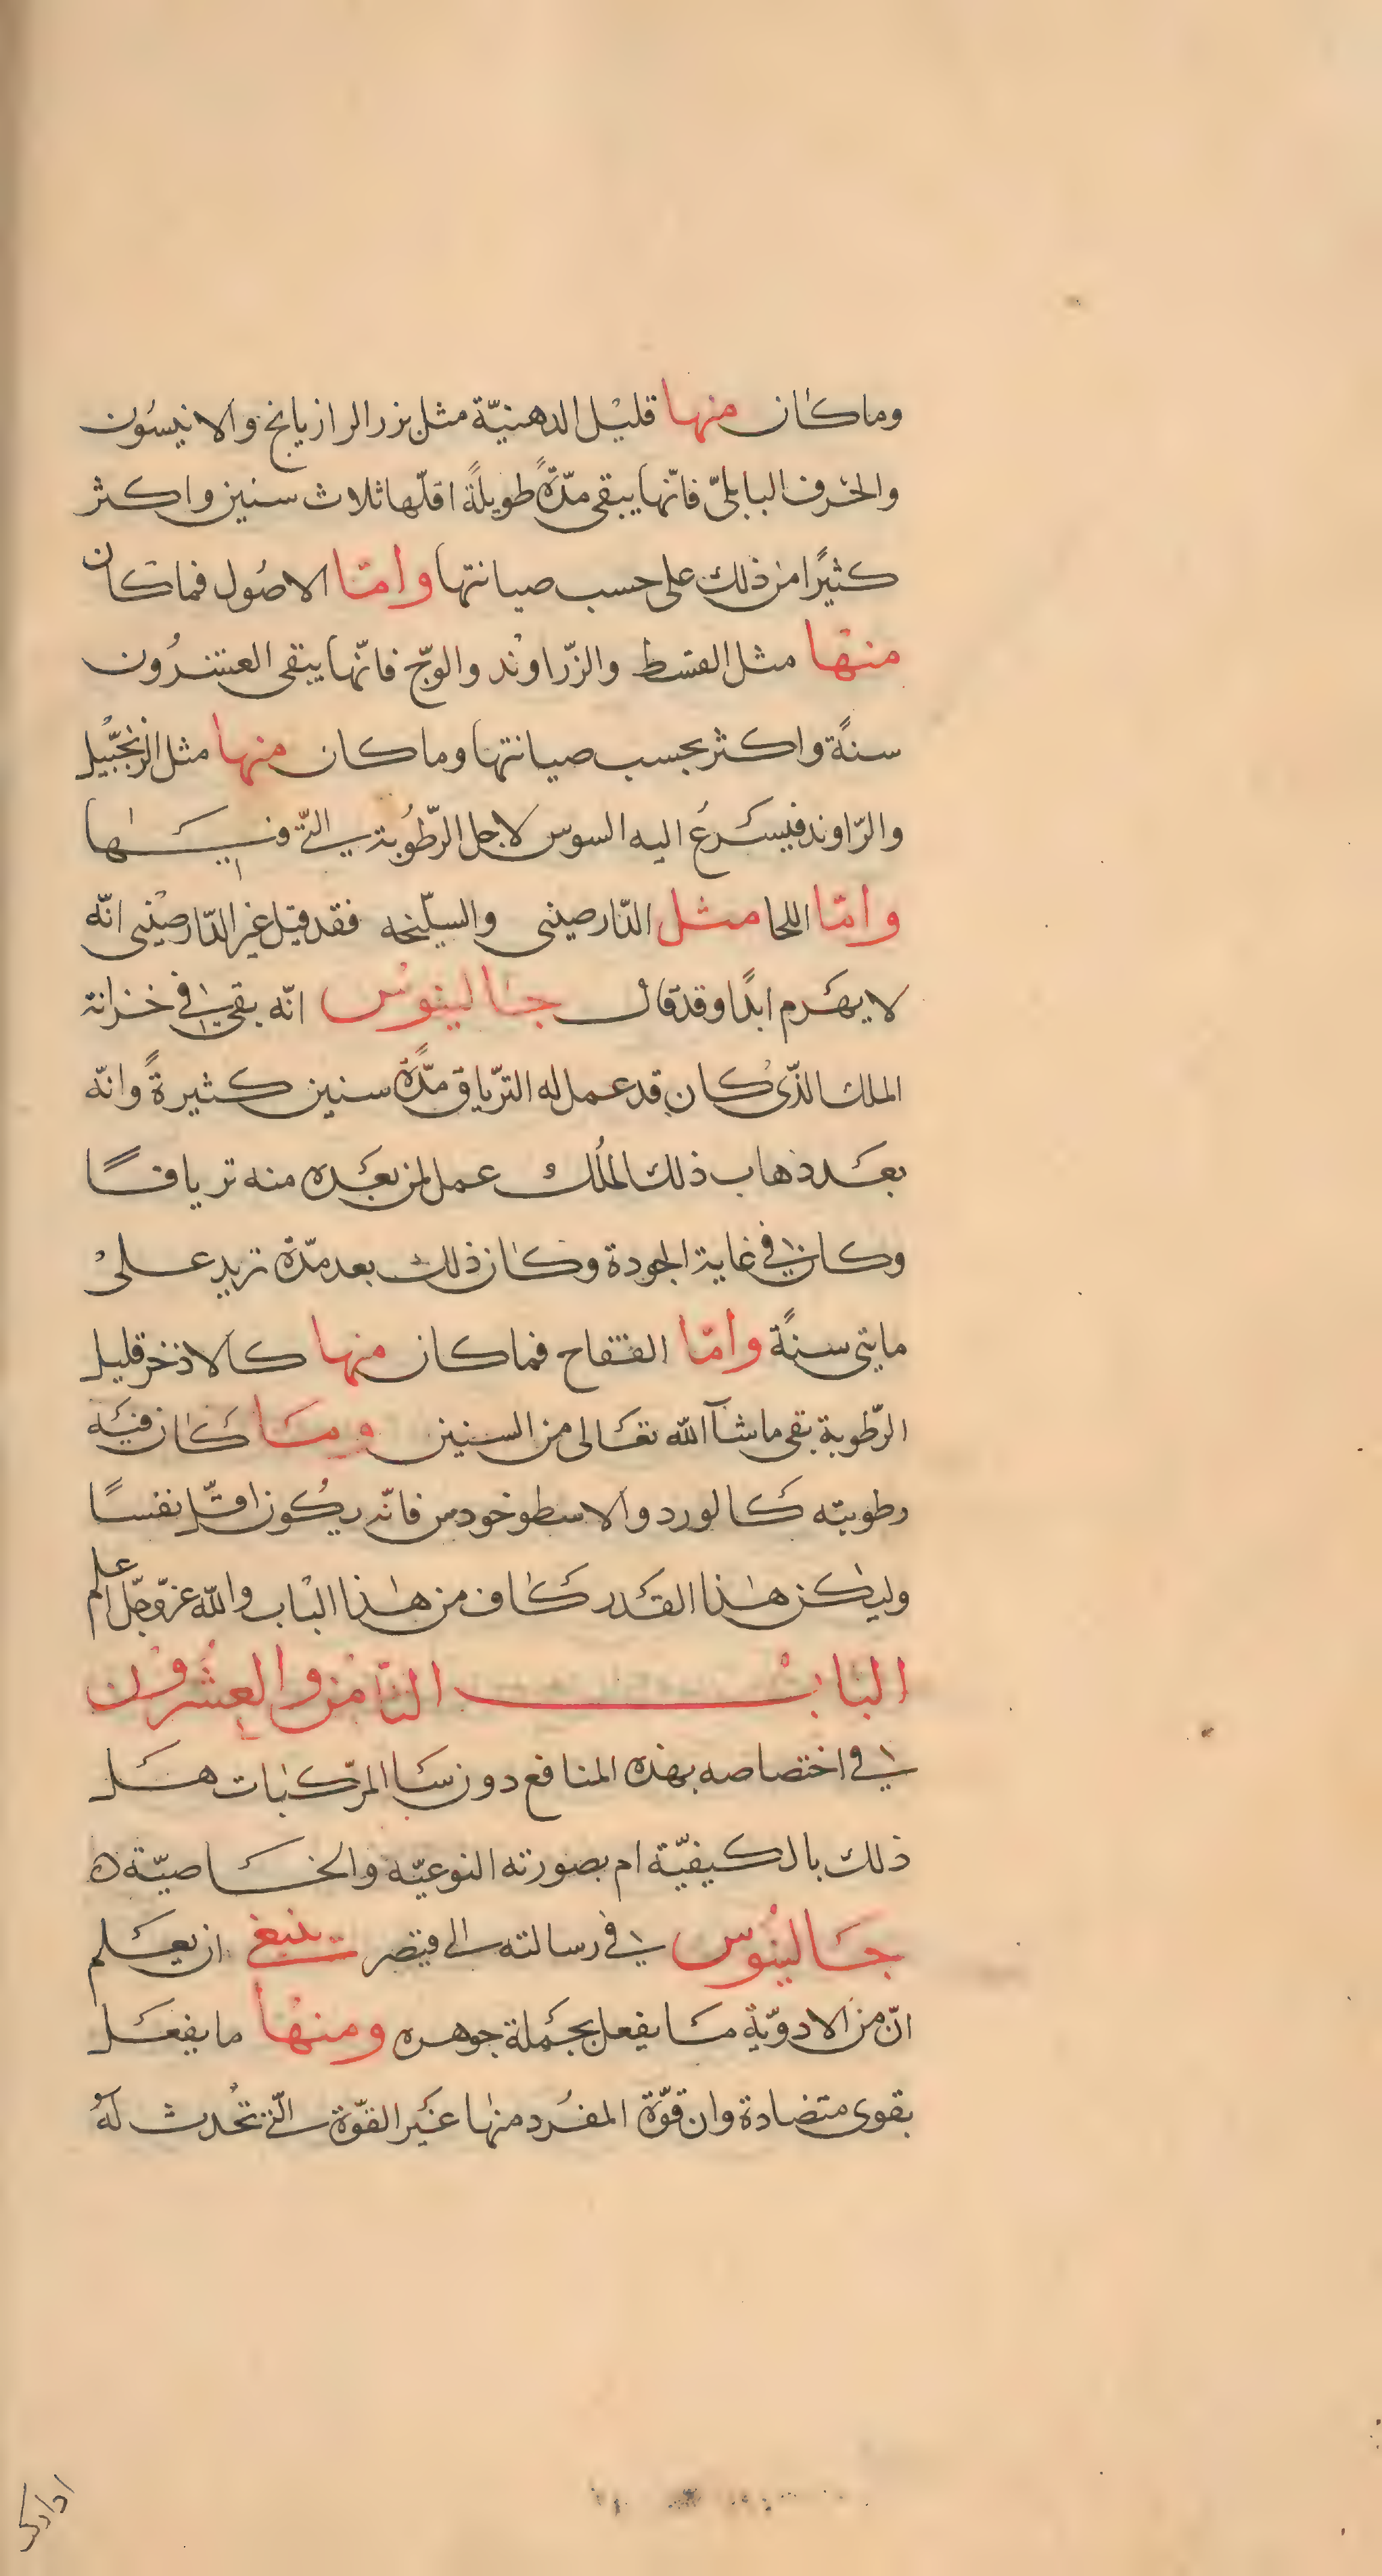 وما كان منها قليل الدهنيّة مثل بزر الرازيانج والانيسون
والحرف البابليّ فانّها يبقى مدّةً طويلةً اقلّها ثلاث سنين واكثر
كثيرًا من ذلك على حسب صيانتها وامّا الاصُول فما كان
منها مثل القسط والزّراوند والوجّ فانّها يبقى العشرُون
سنةً واكثر بحسب صيانتها وما كان منها مثل الزنجبيل
والرّاوند فيسرعُ اليه السوس لاجل الرّطُوبة التّي فيها
وامّا اللحا مثل الدّارصيني والسيلّخه فقد قيل غير الدّارصيني انّه
لا يهرم ابدًا وقد قال جالينوس انّه بقي في خزانة
الملك الذّي كان قد عمل له التريّاق مدّةً سنين كثيرةً وانّه
بعد ذهاب ذلك الملُك عمل لمن بعده منه ترياقًا
وكان في غاية الجودة وكان ذلك بعد مدّة تزيد على
مايتي سنةً وامّا الفقاح فما كان منها كالاذخر قليل
الرّطوبة بقى ما شآ الله تعالى من السنين وما كان فيه
رطوبته كالورد والاسطوخودس فانّه يكُون اقلّ نفسًا
وليكن هذا القدر كاف من هذا الباب والله عزّ وجلّ اعلم
الباب الثامن والعشرون
في اختصاصه بهذه المنافع دون سا المركّبات هل
ذلك بالكيفيّة ام بصورته النوعيّه والخاصيّة ه
جالينُوس في رسالته الى قيصر ينبغي ان يعلم
انّ من الادويّة ما يفعل بجملة جوهره ومنها ما يفعل
بقوى متضادة وان قوّة المفرد منها غير القوّة التّي تحُدث لهُ